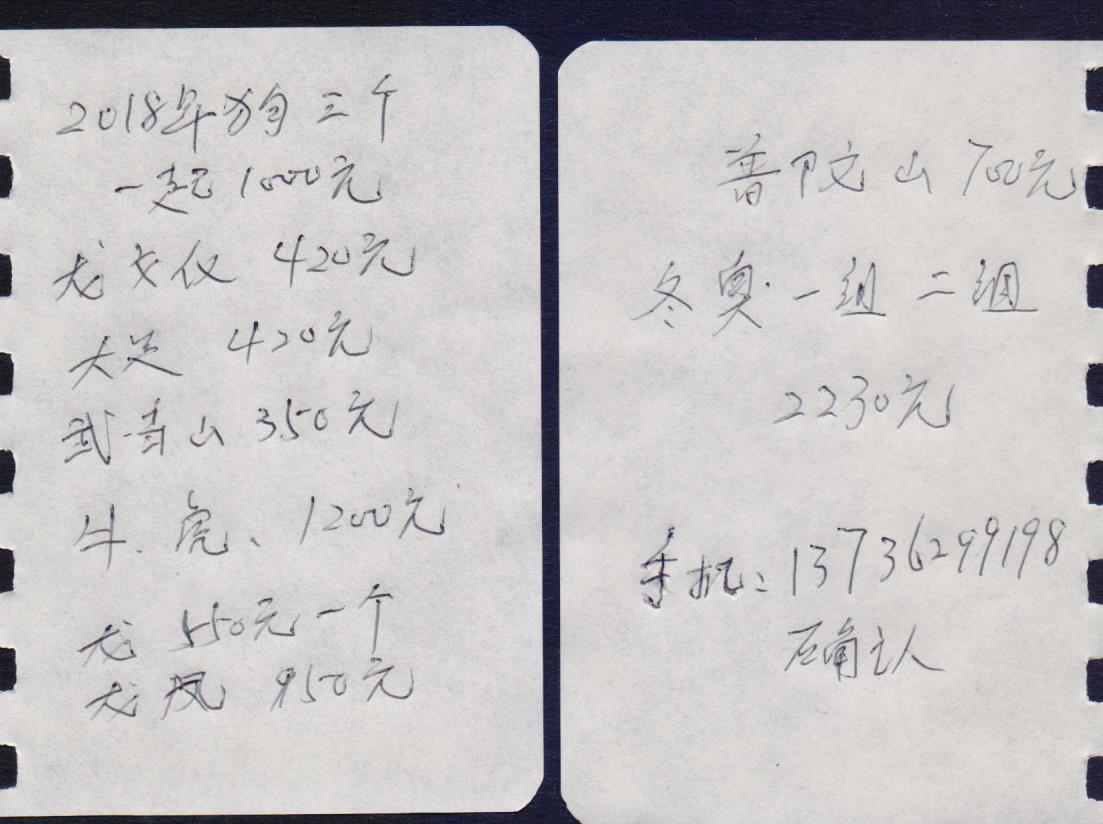 2018年狗三个
一起1000元
龙文仪 420元
大足 420元
武当山 350元
牛、虎、1200元
龙 550元一个
龙凤 950元
普陀山 700元
冬奥一组 二组
2230元
手机:13736299198
石角主人